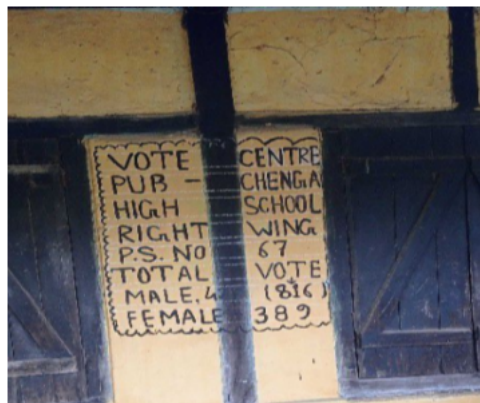 VOTE CENTRE
PUB - CHENGA
HIGH SCHOOL
RIGHT WING
P.S. NO 67
TOTAL VOTE
MALE. (816)
FEMALE 389